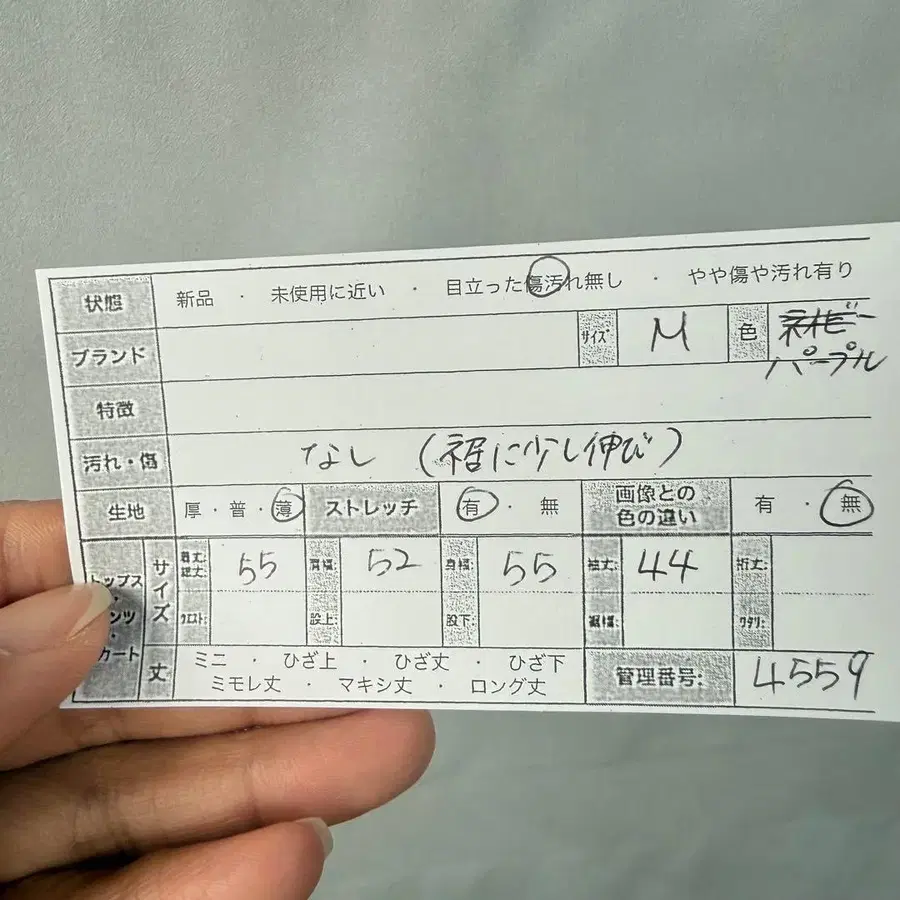 状態 新品 ・ 未使用に近い ・ 目立った傷汚れ無し ・ やや傷や汚れ有り
ブランド サイズ M 色 ネイビー
パープル
特徴
汚れ・傷 なし (裾に少し伸び)
生地 厚・普・薄 ストレッチ 有・無 画像との色の違い 有・無
トップス・ンツ・カート サイズ 着丈総丈: 55 肩幅: 52 身幅: 55 袖丈: 44 裄丈:
ウエスト: 股上: 股下: 裾幅: ワタリ:
丈 ミニ ・ ひざ上 ・ ひざ丈 ・ ひざ下
ミモレ丈 ・ マキシ丈 ・ ロング丈 管理番号: 4559